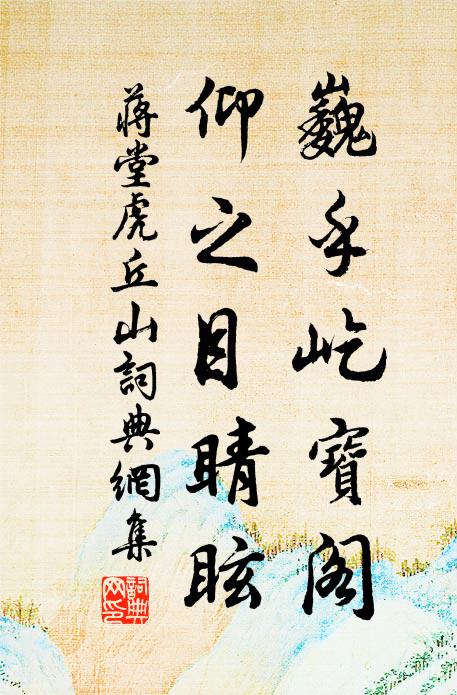 巍乎屹寶閣
仰之目睛眩
蔣堂虎丘山詞典網集
詞典网印